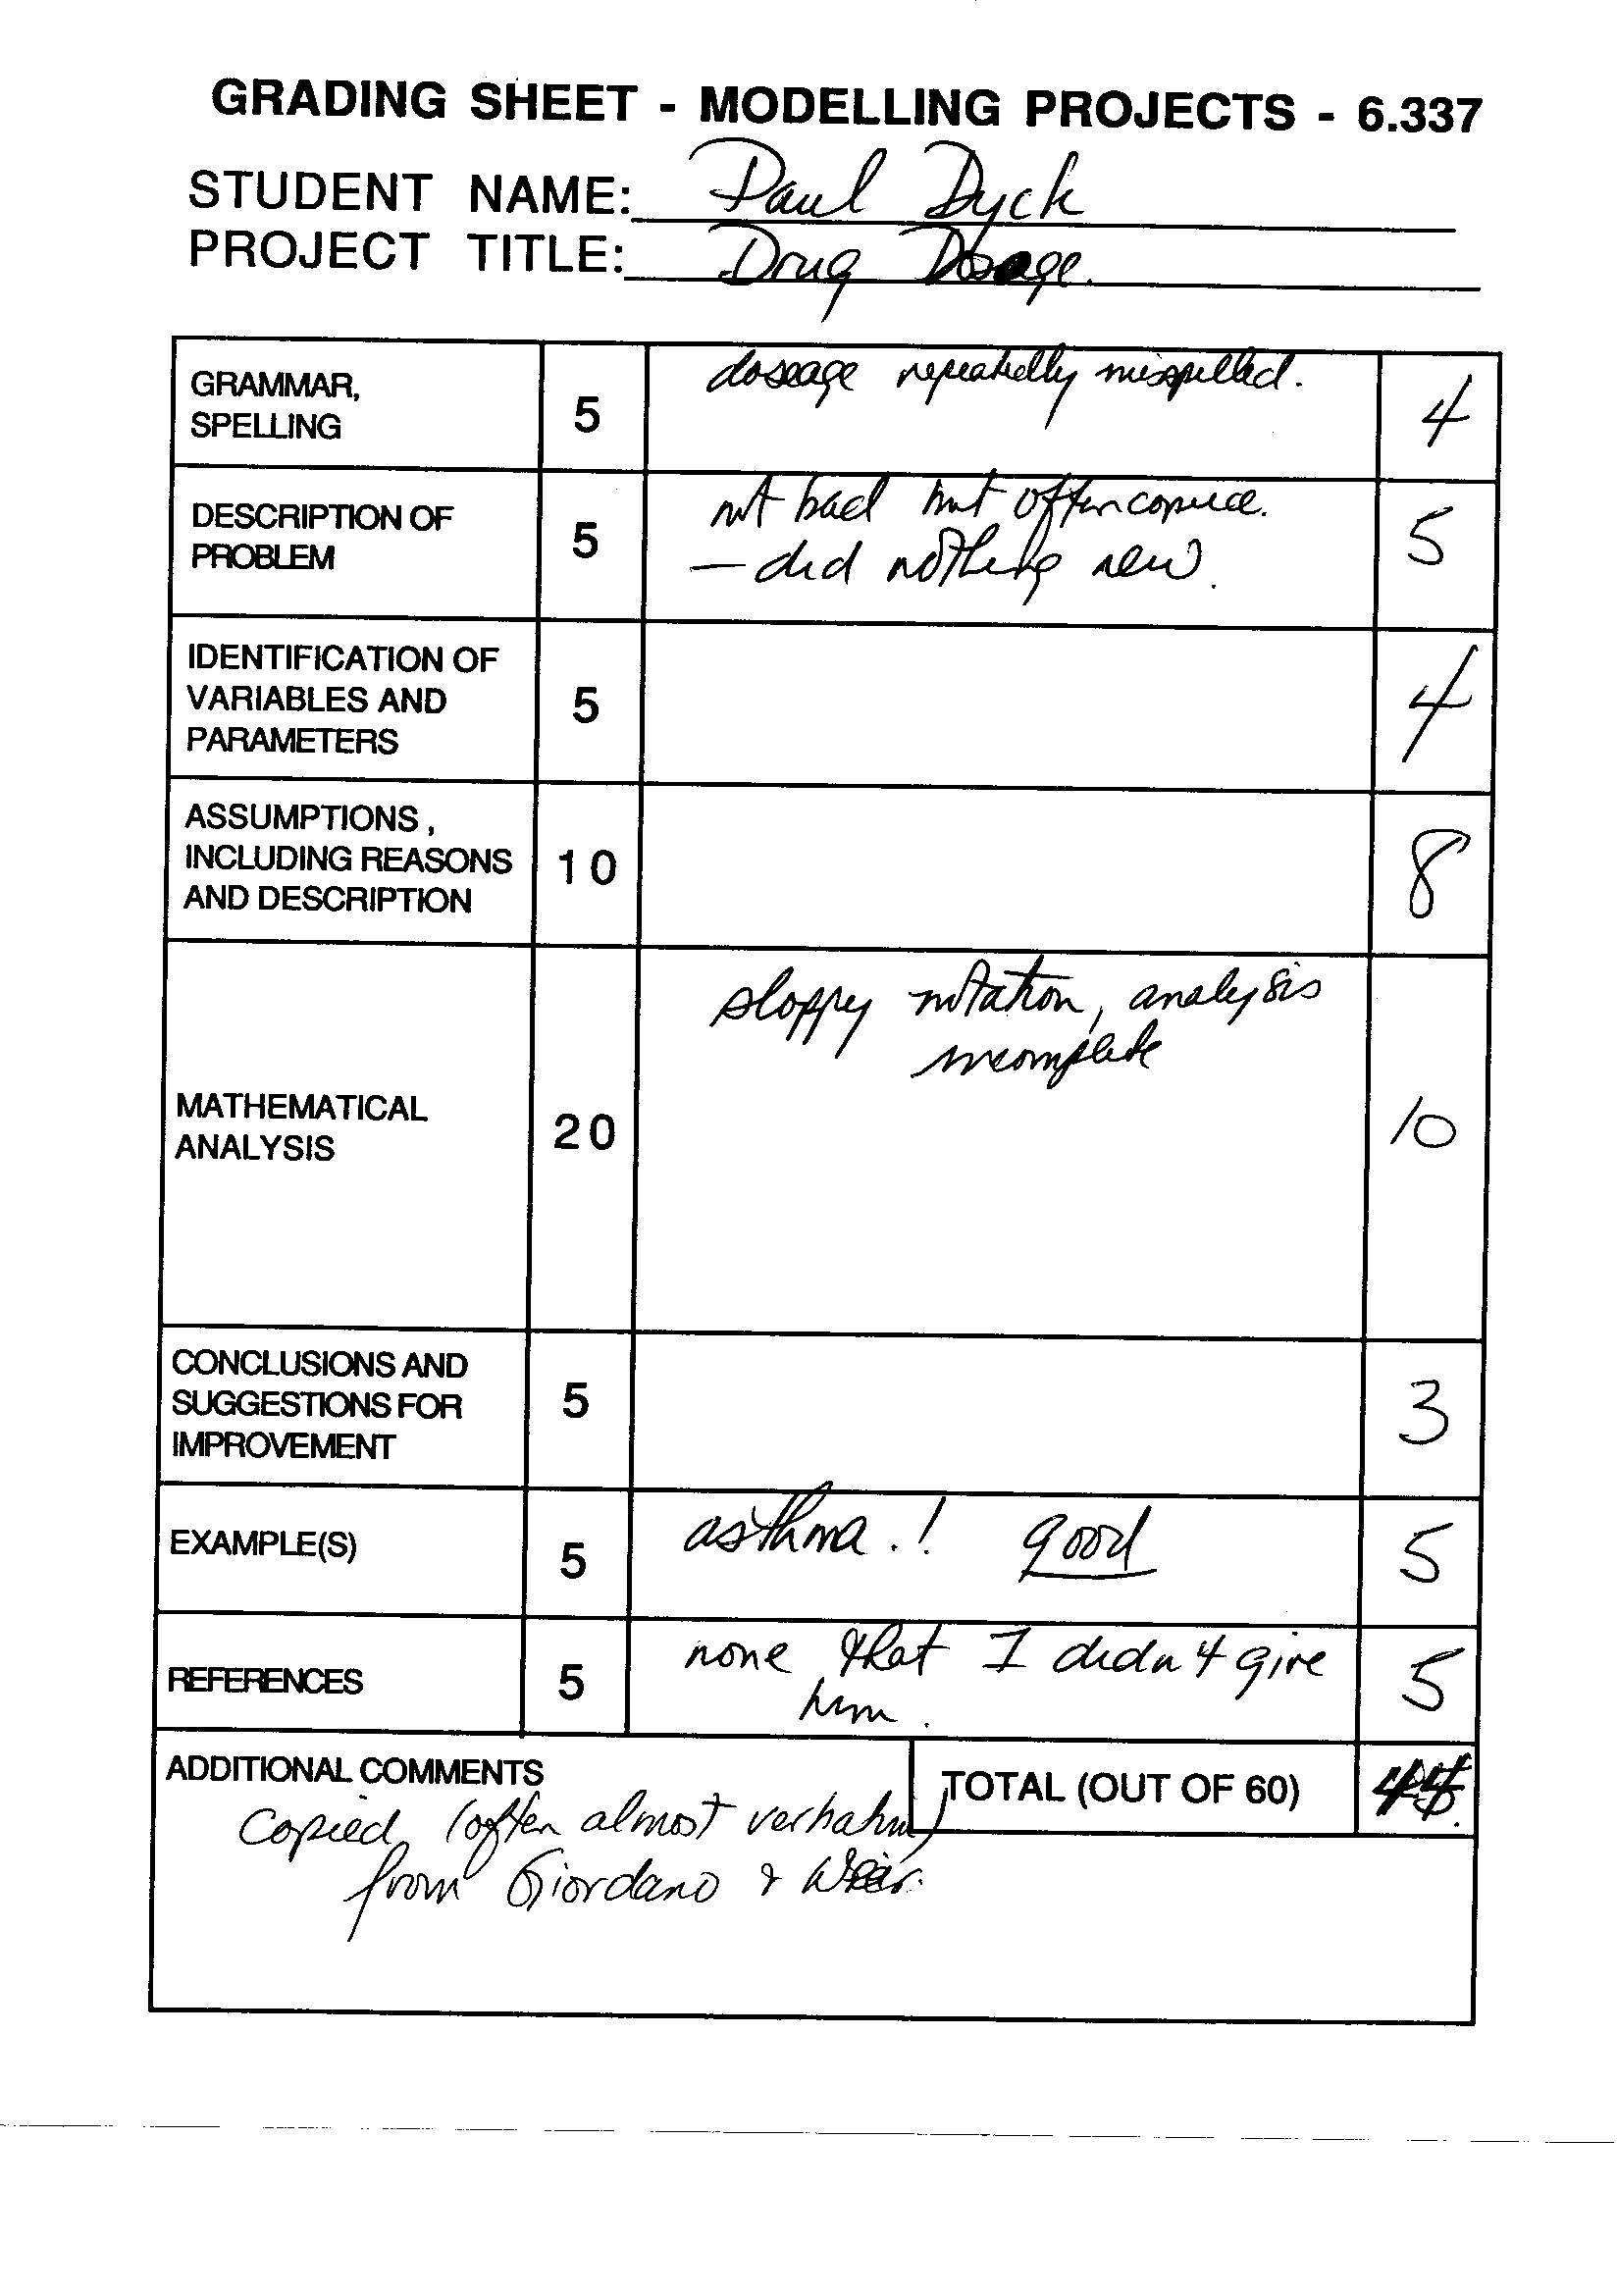 GRADING SHEET - MODELLING PROJECTS - 6.337
STUDENT NAME: Paul Dyck
PROJECT TITLE: Drug Dosage.
GRAMMAR,
SPELLING
5
doseage repeatedly misspelled.
4
DESCRIPTION OF
PROBLEM
5
not bad but often copied.
- did nothing new.
5
IDENTIFICATION OF
VARIABLES AND
PARAMETERS
5
4
ASSUMPTIONS ,
INCLUDING REASONS
AND DESCRIPTION
10
8
MATHEMATICAL
ANALYSIS
20
sloppy notation, analysis
incomplete
10
CONCLUSIONS AND
SUGGESTIONS FOR
IMPROVEMENT
5
3
EXAMPLE(S)
5
asthma.! good
5
REFERENCES
5
none that I didn't give
him.
5
ADDITIONAL COMMENTS
TOTAL (OUT OF 60)
44.
Copied (often almost verbatim)
from Giordano & Weir.